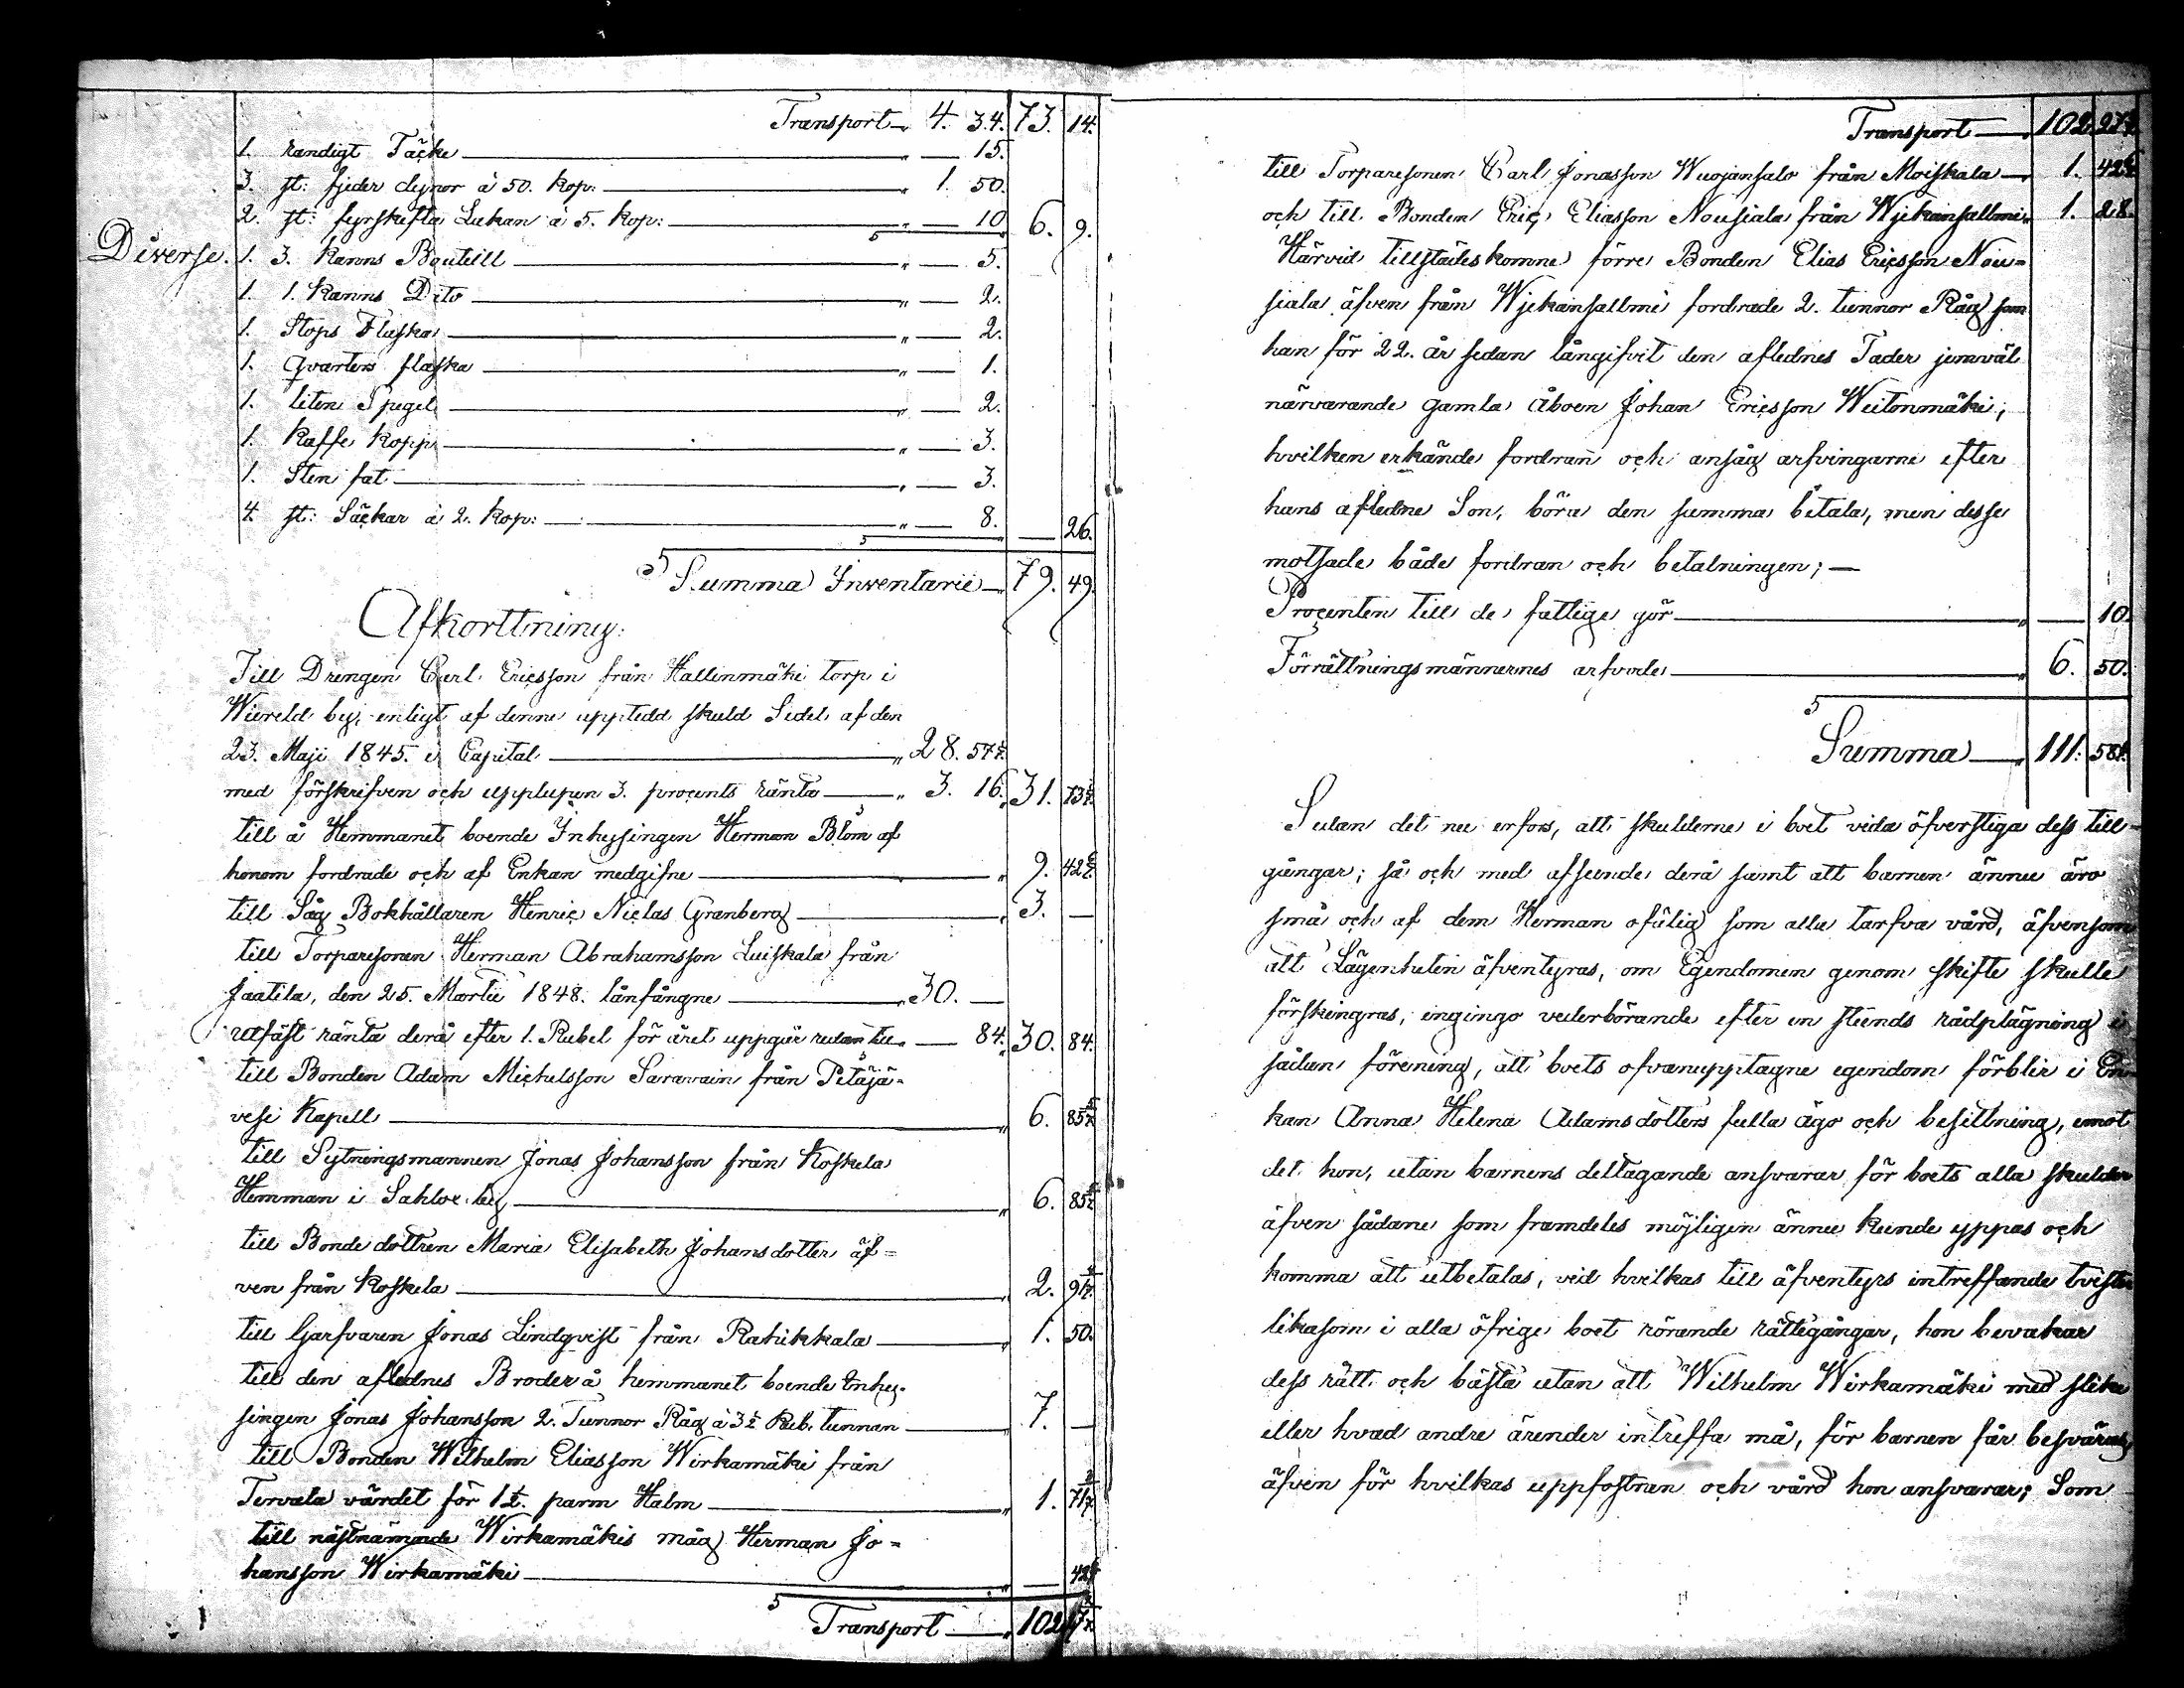 Transport „ 4. 34. 73. 14.
1. randigt Täcke „ — 15.
3. st: fjeder dynor à 50. kop: „ 1. 50.
2. st: fyrskefta Lakan à 5. kop: „ — 10. 6. 9.
Diverse. 1. 3. kanns Bouteill „ — 5.
1. 1. kanns Dito „ — 2.
1. Stops Flaska „ — 2.
1. Qvarters flaska „ — 1.
1. liten Spegel „ — 2.
1. Kaffe kopp „ — 3.
1. Sten fat „ — 3.
4. st: Säckar à 2. kop: „ — 8. — 26.
Summa Inventarii 79. 49.
Afkorttning:
Till Drengen Carl Ericsson från Hallinmäki torp i
Wiereld by, enligt af denne upptedd skuld Sedel af den
23. Maji 1845. i Capital „ 28. 57
med förskrifven och upplupen 3. procents ränta „ 3. 16. 31. 73
till å Hemmanet boende Inhysingen Herman Blom af
honom fordrade och af Enkan medgifne „ 9. 42
till Såg Bokhållaren Henric Niclas Granberg „ 3. —
till Torparesonen Herman Abrahamsson Luiskala från
Jaatila, den 25. Martii 1848. lånfångne „ 30. —
utfäst ränta derå efter 1. Rubel för året uppgår redan till „ — 84. 30. 84.
till Bonden Adam Michelsson Saravain från Petäjä-
vesi Kapell „ 6. 85
till Sytningsmannen Jonas Johansson från Koskela
Hemman i Sahloi by „ 6. 85
till Bonde dottren Maria Elisabeth Johansdotter äf=
ven från Koskela „ 2. 91
till Garfvaren Jonas Lindqvist från Rahikkala „ 1. 50.
till den aflednes Broder å hemmanet boende Inhy-
singen Jonas Johansson 2. Tunnor Råg à 3½ Rub. tunnan 7. —
till Bonden Wilhelm Eliasson Wirkamäki från
Tervala värdet för 1½. parm Halm „ 1. 71
till näst nämnde Wirkamäkis måg Herman Jo=
hansson Wirkamäki „ — 42
Transport „ 102.
Transport „ 102. 27
till Torparesonen Carl Jonasson Wuojansalo från Moiskala „ 1. 42
och till Bonden Eric Eliasson Nousiala från Wjekansallmi „ 1. 28.
Härvid tillstädeskomne förre Bonden Elias Ericsson Nou=
siala äfven från Wjekansallmi fordrade 2. tunnor Råg som
han för 22. år sedan långifvit den aflednes Fader jemväl
närvarande gamla Åboen Johan Ericsson Weitonmäki;
hvilken erkände fordran och ansåg arfvingarne efter
hans afledne Son, böra den samma betala, men desse
motsade både fordran och betalningen; —
Procenten till de fattige gör „ — 10.
Förrättningsmännernes arfvode „ 6. 50.
Summa „ 111. 58
Sedan det nu erfors, att skulderne i boet vida öfverstiga dess till=
gångar; så och med afseende derå samt att barnen ännu äro
små och af dem Herman ofälig som alla tarfva vård, äfvensom
att Lägenheten äfventyras, om Egendomen genom skifte skulle
förskingras, ingingo vederbörande efter en stunds rådplägning i
sådan förening, att boets ofvanupptagne egendom förblir i En-
kan Anna Helena Adamsdotters fulla ägo och besittning, emot
det hon, utan barnens deltagande ansvarar för boets alla skulder
äfven sådane som framdeles möjligen ännu kunde yppas och
komma att utbetalas, vid hvilkas till äfventyrs intreffande tvister
likasom i alla öfrige boet rörande rättegångar, hon bevakar
dess rätt och bästa utan att Wilhelm Wirkamäki med slike
eller hvad andre ärender intreffa må, för barnen får besväras,
äfven för hvilkas uppfostran och vård hon ansvarar; Som